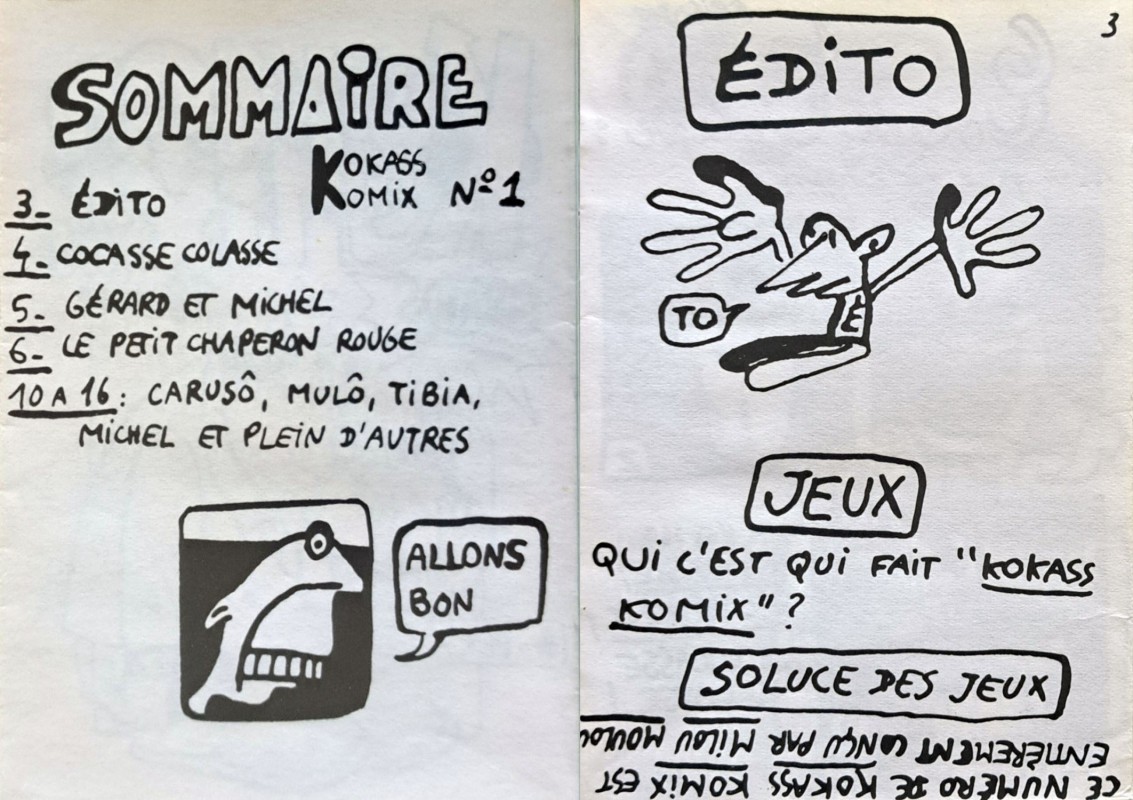 SOMMAIRE
KOKASS
KOMIX Nº1
3_ ÉDITO
4_ COCASSE COLASSE
5_ GÉRARD ET MICHEL
6_ LE PETIT CHAPERON ROUGE
10 A 16: CARUSÔ, MULÔ, TIBIA,
MICHEL ET PLEIN D'AUTRES
ALLONS
BON
3
ÉDITO
TO
É
JEUX
QUI C'EST QUI FAIT "KOKASS
KOMIX"?
SOLUCE DES JEUX
CE NUMÉRO DE KOKASS KOMIX EST
ENTIÈREMENT CONÇU PAR MILOU MOULOU